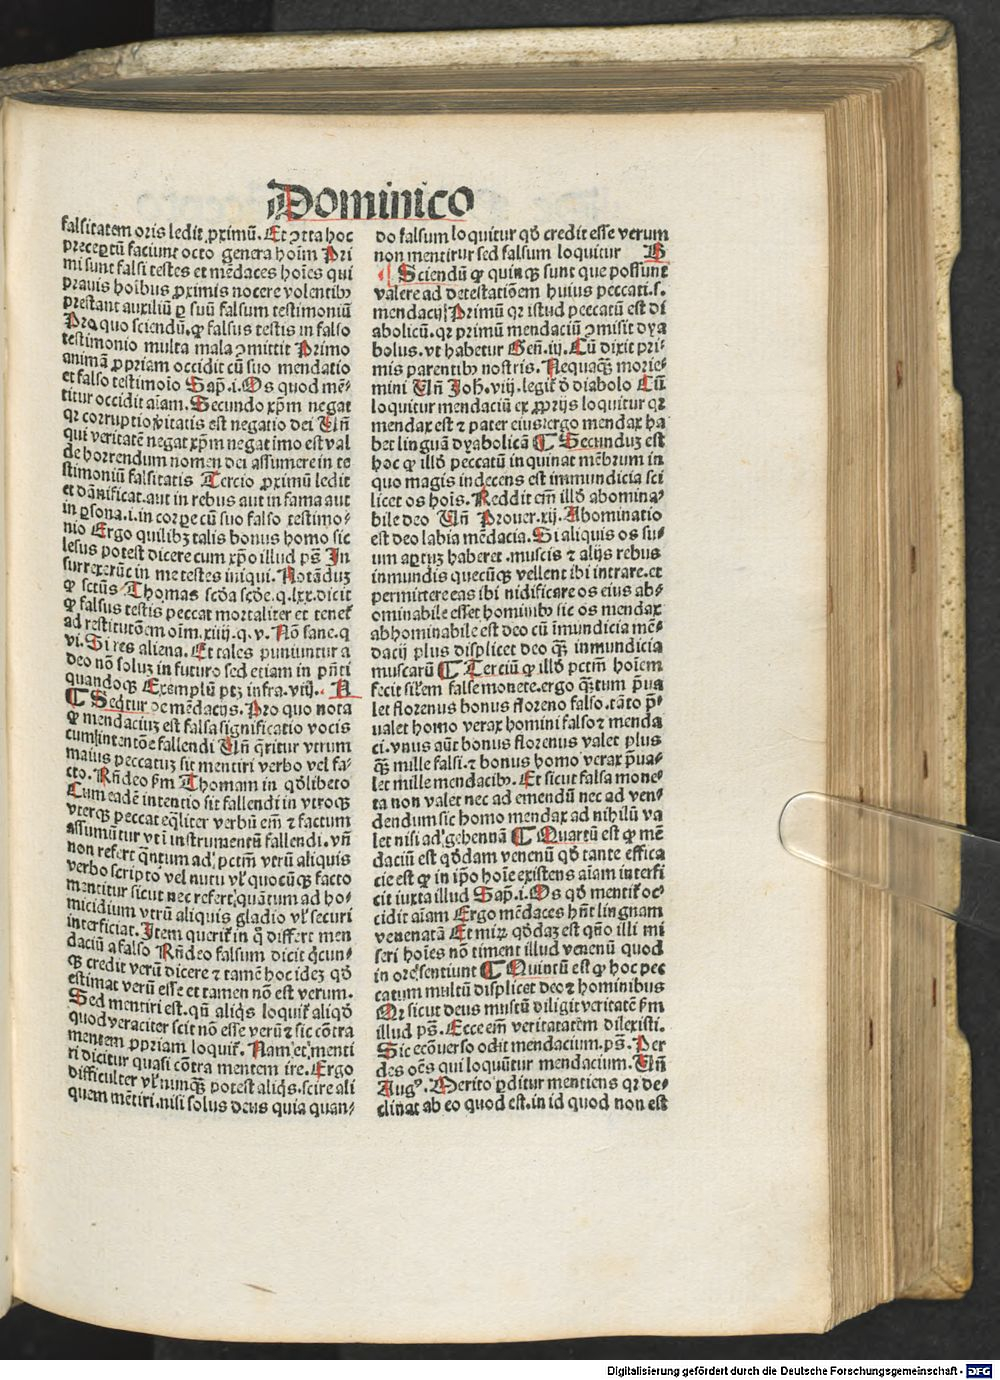 Dominico
falsitatem oris ledit ꝓximū. Et ꝯtra hoc
preceptū faciunt octo genera hoīm Pri
mi sunt falsi testes et mēdaces hoīes qui
prauis hoībus ꝓximis nocere volentibꝫ
prestant auxiliū ꝑ suū falsum testimoniū
Pro quo sciendū. ꝙ falsus testis in falso
testimonio multa mala ꝯmittit Primo
animā ꝓpriam occidit cū suo mendatio
et falso testimoīo Sap̄. i. Os quod mē⸗
titur occidit aīam. Secundo xp̄m negat
qꝛ corruptio vitatis est negatio dei Vn̄
qui veritatē negat xp̄m negat imo est val
de horrendum nomen dei assumere in te
stimoniū falsitatis Tercio ꝓximū ledit
et dānificat. aut in rebus aut in fama aut
in ꝑsona. i. in corpe cū suo falso testimo⸗
nio Ergo quilibꝫ talis bonus homo sic
lesus potest dicere cum xp̄o illud ps̄ In
surrexerūt in me testes iniqui. Notāduꝫ
ꝙ sctūs Thomas scd̄a scd̄e. q. lxx. dicit
ꝙ falsus testis peccat mortaliter et teneꝉ
ad restitutōem oīm. xiiij. q. v. Nō sane. q
vi. Si res aliena. Et tales puniuntur a
deo nō soluꝫ in futuro sed etiam in pn̄ti
quandoqꝫ Exemplū ptꝫ infra. viij. A
¶ Seq̄tur de mēdacijs. Pro quo nota
ꝙ mendaciuꝫ est falsa significatio vocis
cum intentōe fallendi Vn̄ q̄ritur vtrum
maius peccatuꝫ sit mentiri verbo vel fa⸗
cto. Rn̄deo ẜm Thomam in qd̄libeto
Cum eadē intentio sit fallendi in vtroqꝫ
vterqꝫ peccat eq̄liter verbū em̄ ⁊ factum
assumūtur vti instrumentū fallendi. vn̄
non refert q̄ntum ad pctm̄ vtrū aliquis
verbo scripto vel nutu vꝉ quocūqꝫ facto
mentitur sicut nec refert quātum ad ho⸗
micidium vtrū aliquis gladio vꝉ securi
interficiat. Item querit̉ in q̄ differt men
daciū a falso Rn̄deo falsum dicit q̄cun⸗
qꝫ credit verū dicere ⁊ tamē hoc ideꝫ qd̄
estimat verū esse et tamen nō est verum.
Sed mentiri est. qn̄ aliq̄s loquit̉ aliqd̄
quod veraciter scit nō esse verū ⁊ sic cōtra
mentem ꝓpriam loquit̉. Nam et menti
ri dicitur quasi cōtra mentem ire. Ergo
difficulter vꝉ nunqꝫ potest aliq̄s. scire ali
quem mētiri. nisi solus deus quia quan⸗
do falsum loquitur qd̄ credit esse verum
non mentitur sed falsum loquitur B
¶ Sciendū ꝙ quinqꝫ sunt que possunt
valere ad detestatiōem huius peccati. s.
mendacij Primū qꝛ istud peccatū est di
abolicū. qꝛ primū mendaciū ꝯmisit dya
bolus. vt habetur Gen̄. iij. Cū dixit pri⸗
mis parentibꝫ nostris. Nequaqꝫ morie⸗
mini Vn̄ Joh̄. viij. legit̉ d̄ diabolo Cū
loquitur mendaciū ex ꝓprijs loquitur qꝛ
mendax est ⁊ pater eius ergo mendax ha
bet linguā dyabolicā ¶ Secunduꝫ est
hoc ꝙ illd̄ peccatū inquinat mēbrum in
quo magis indecens est immundicia sci
licet os hoīs. Reddit em̄ illd̄ abomina⸗
bile deo Vn̄ Prouer. xij. Abominatio
est deo labia mēdacia. Si aliquis os su⸗
um aꝑtuꝫ haberet. muscis ⁊ alijs rebus
inmundis quecūqꝫ vellent ibi intrare. et
permittere eas ibi nidificare os eius ab⸗
ominabile esset hominibꝫ sic os mendax
abhominabile est deo cū īmundicia mē⸗
dacij plus displicet deo qꝫ inmundicia
muscarū ¶ Terciū ꝙ illd̄ pctm̄ hoīem
fecit sil̄em false monete. ergo qꝫtum p̄ua
let florenus bonus floreno falso. tāto p̄⸗
ualet homo verax homini falso ⁊ menda
ci. vnus aūt bonus florenus valet plus
qꝫ mille falsi. ⁊ bonus homo verax p̄ua⸗
let mille mendacibꝫ. Et sicut falsa mone⸗
ta non valet nec ad emendū nec ad ven⸗
dendum sic homo mendax ad nihilū va
let nisi ad gehennā ¶ Quartū est ꝙ mē
daciū est qd̄dam venenū qd̄ tante effica
cie est ꝙ in ip̄o hoīe existens aīam interfi
cit iuxta illud Sap̄. i. Os qd̄ mentit̉ oc⸗
cidit aīam Ergo mēdaces hn̄t lingnam
venenatā Et miꝝ qd̄daꝫ est qūo illi mi
seri hoīes nō timent illud venenū quod
in ore sentiunt ¶ Quintū est ꝙ hoc pec
catum multū displicet deo ⁊ hominibus
Qꝛ sicut deus multū diligit veritatē ẜm
illud ps̄. Ecce em̄ veritatatēm dilexisti.
Sic ecōuerso odit mendacium. ps̄. Per
des oēs qui loquūtur mendacium. Vn̄
Augꝰ. Merito ꝑditur mentiens qꝛ de⸗
clinat ab eo quod est. in id quod non est
Digitalisierung gefördert durch die Deutsche Forschungsgemeinschaft - DFG